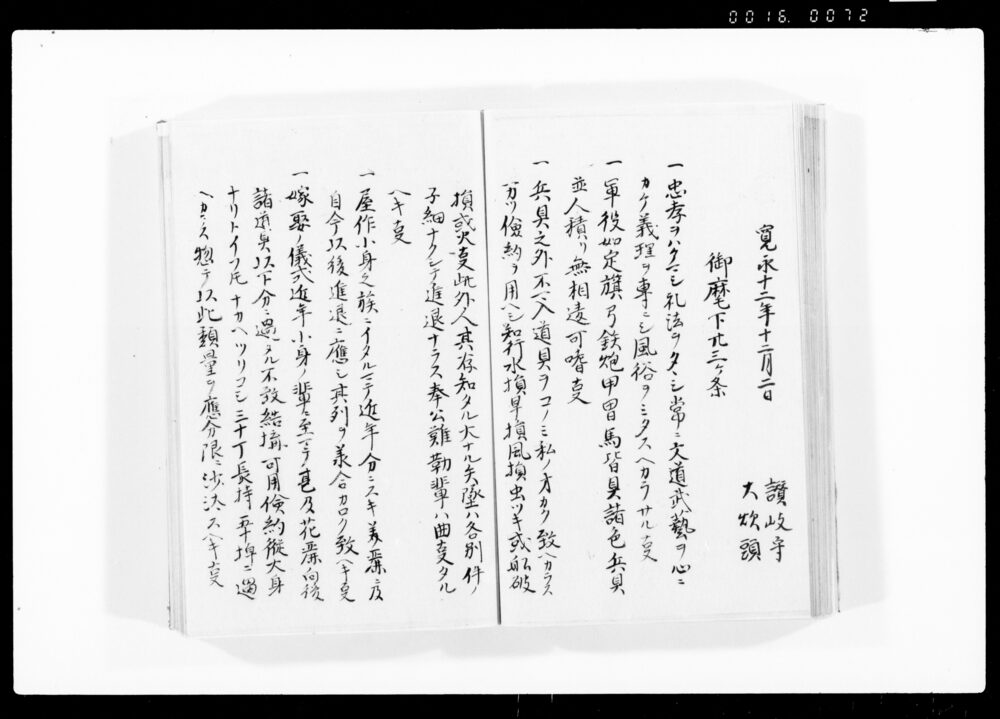 0016. 0072
寛永十二年十二月二日
讃岐守
大炊頭
御麾下廿三ケ条
一忠孝ヲハケマシ礼法ヲタヽシ常ニ文道武藝ヲ心ニ
カケ義理ヲ専ニシ風俗ヲミタスヘカラサル㕝
一軍役如定旗弓鉄炮甲冑馬皆具諸色兵具
並人積リ無相違可嗜㕝
一兵具之外不入道具ヲコノミ私ノオカク致ヘカラス
万ツ儉約ヲ用ヘシ知行水損旱損風損虫ツキ或舩破
損或火㕝此外人其存知タル大ナル失墜ハ各別件ノ
子細ナクシテ進退ナラス奉公難勤輩ハ曲㕝タル
ヘキ㕝
一屋作小身之族ニイタルマテ近年分ニスキ美麗ニ及
自今以後進退ニ應シ其列ヲ義合カロク致ヘキ㕝
一嫁娶ノ儀式近年小身ノ輩ニ至マテ甚及花麗向後
諸道具以下分ニ過タル不致結構可用儉約縦大身
ナリトイフ𪜈ナカヘツリコシ三十丁長持五十棹ニ過
ヘカラス惣テ以此類量ヲ應分限ニ沙汰スヘキ㕝